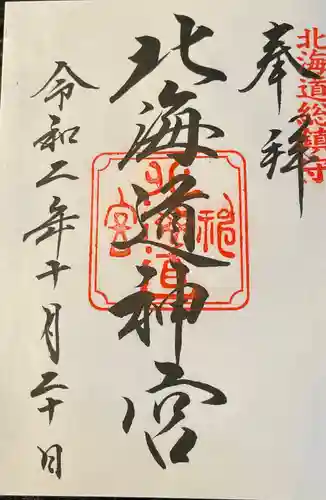 北海道総鎮守
奉拝
北海道神宮
令和二年十月二十日